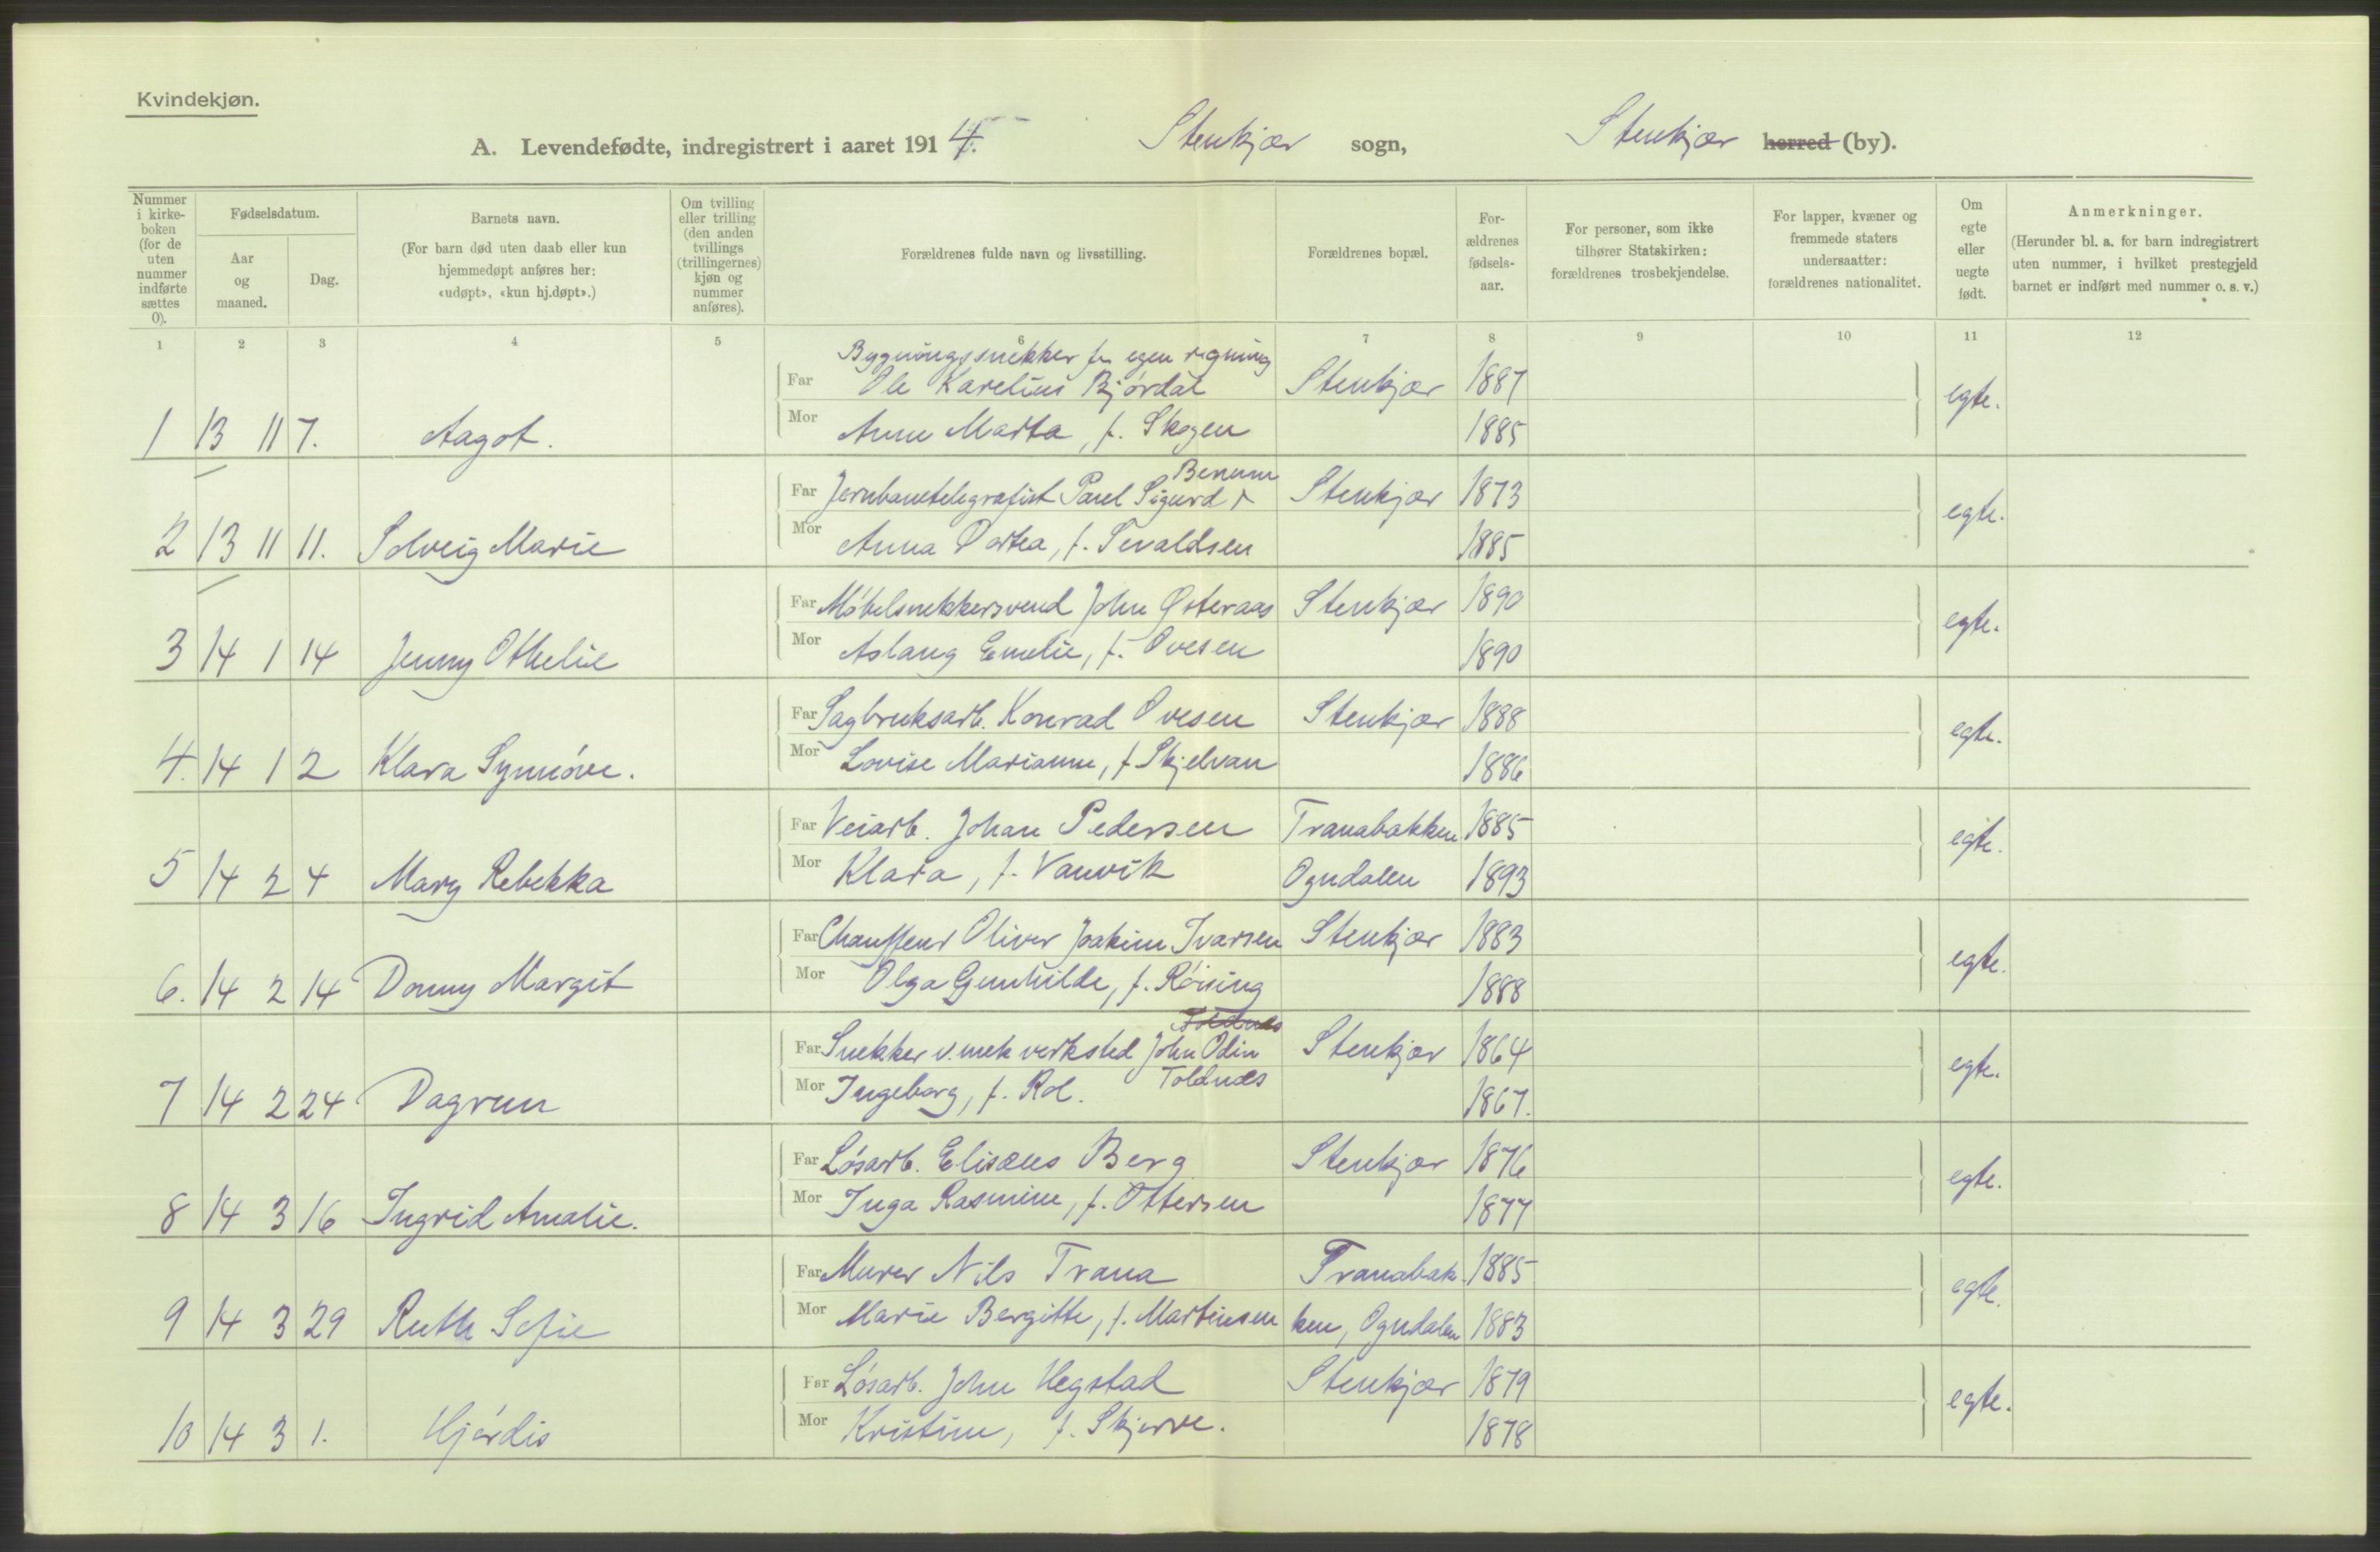 Kvindekjøn.
A. Levendefødte, indregistrert i aaret 1914. Stenkjær sogn, Stenkjær herred (by).
Nummer i kirke-boken (for de uten nummer indførte sættes 0).
Fødselsdatum.
Aar og maaned.
Dag.
Barnets navn.
(For barn død uten daab eller kun hjemmedøpt anføres her: «udøpt», «kun hj.døpt».)
Om tvilling eller trilling (den anden tvillings (trillingernes) kjøn og nummer anføres).
Forældrenes fulde navn og livsstilling.
Forældrenes bopæl.
For-ældrenes fødsels-aar.
For personer, som ikke tilhører Statskirken: forældrenes trosbekjendelse.
For lapper, kvæner og fremmede staters undersaatter: forældrenes nationalitet.
Om egte eller uegte født.
Anmerkninger.
(Herunder bl. a. for barn indregistrert uten nummer, i hvilket prestegjeld barnet er indført med nummer o. s. v.)
1 2 3 4 5 6 7 8 9 10 11 12
Bygningssnekker f. egen regning
Far Ole Karelius Bjørdal Stenkjær 1887
1 13 11 7. Aagot. Mor Anne Marta, f. Skogen 1885 egte.
Benum
Far Jernbanetelegrafist Paul Sigurd Stenkjær 1873
2 13 11 11. Solveig Marie Mor Anna Dortea, f. Sevaldsen 1885 egte.
Far Møbelsnekkersvend John Østeraas Stenkjær 1890
3 14 1 14 Jenny Othelie Mor Aslaug Emelie, f. Ovesen 1890 egte.
Far Sagbruksarb. Konrad Ovesen Stenkjær 1888
4. 14 1 2 Klara Synnøve. Mor Lovise Marianne, f. Skjelvan 1886 egte.
Far Veiarb. Johan Pedersen Tranabakken 1885
5 14 2 4 Mary Rebekka Mor Klara, f. Vanvik Ogndalen 1893 egte.
Far Chauffeur Oliver Joakim Ivarsen Stenkjær 1883
6. 14 2 14 Donny Margit Mor Olga Gunhilde, f. Røising 1888 egte.
Toldnes
Far Snekker v. mek verksted John Odin Stenkjær 1864
7 14 2 24 Dagrun Mor Ingeborg, f. Rol. Toldnæs 1867. egte.
Far Løsarb. Elisæus Berg Stenkjær 1876
8 14 3 16 Ingrid Amalie. Mor Inga Rasmine, f. Ottersen 1877 egte.
Far Murer Nils Trana Tranabak- 1885
9 14 3 29 Ruth Sofie Mor Marie Bergitte, f. Martinsen ken, Ogndalen 1883 egte.
Far Løsarb. John Hegstad Stenkjær 1879
10 14 3 1. Hjørdis Mor Kristine, f. Skjerve. 1878 egte.